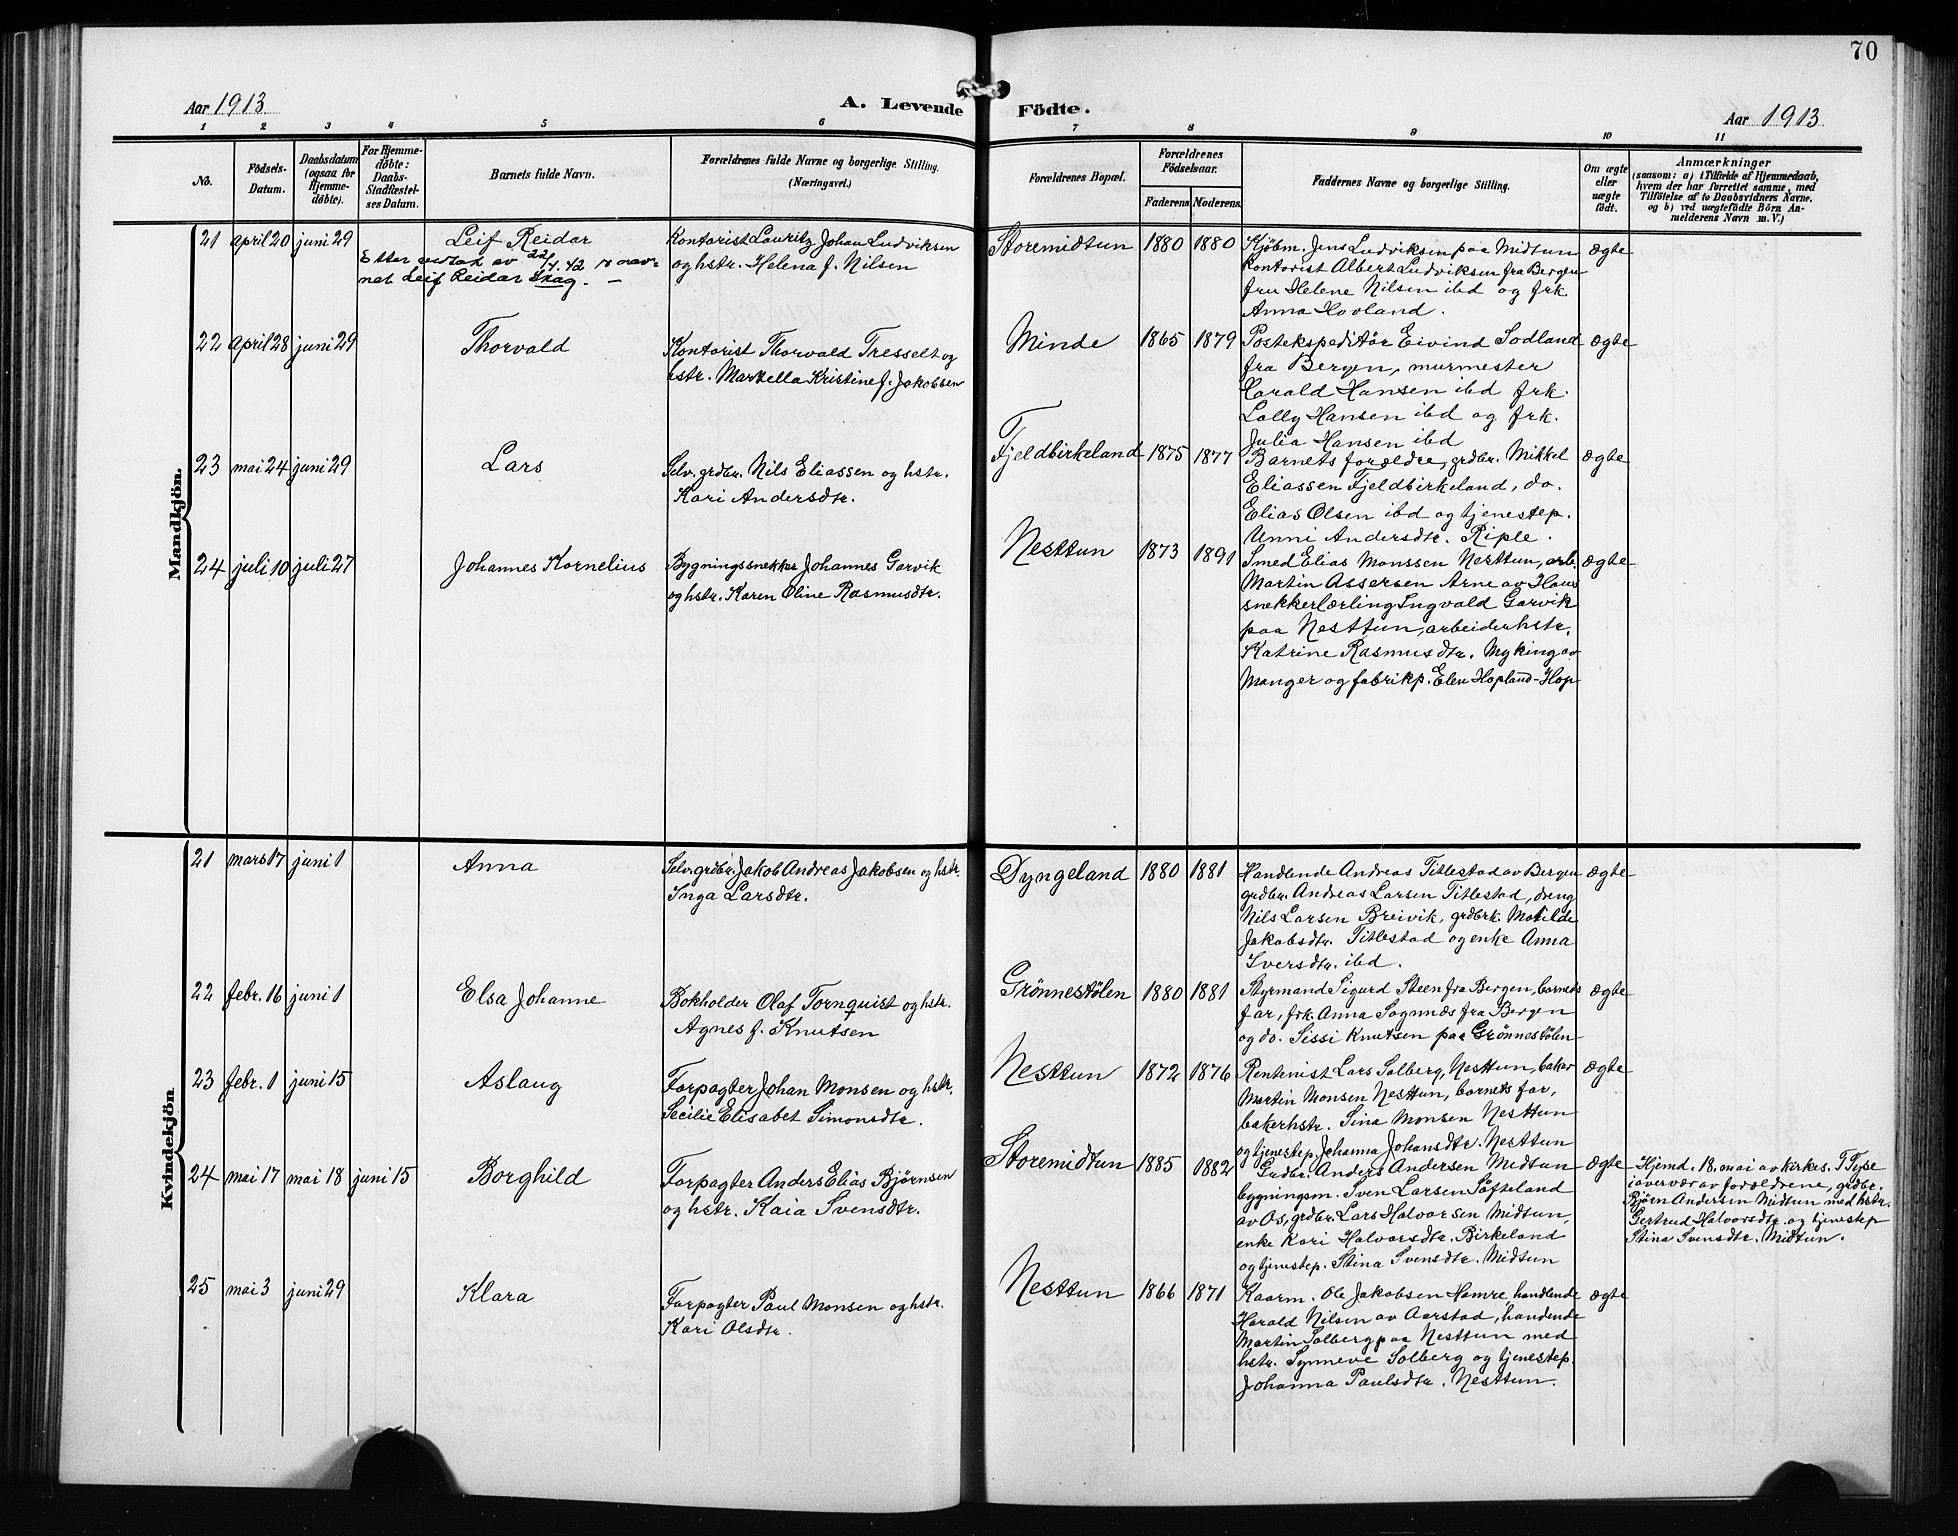 70
Aar 1913
A. Levende Födte.
Aar 1913
1 2 3 4 5 6 7 8 9 10 11
No.
Födsels-
Datum.
Daabsdatum
(ogsaa for
Hjemme-
döbte).
For Hjemme-
döbte:
Daabs-
Stadfæstel-
ses Datum.
Barnets fulde Navn.
Forældrenes fulde Navne og borgerlige Stilling.
(Næringsvei.)
Forældrenes Bopæl.
Forældrenes
Födselsaar.
Faderens
Moderens
Faddernes Navne og borgerlige Stilling.
Om ægte
eller
uægte
födt.
Anmærkninger
(saasom: a) i Tilfælde af Hjemmedaab,
hvem der har forrettet samme, med
Tilföielse af to Daabsvidners Navne.
og b) ved uægtefödte Börn An-
melderens Navn m. V.)
Mandkjön.
21 april 20 juni 29
Leif Reidar
Etter vedtak av 22/4.42 nav-
net Leif Reidar Skag. —
Kontorist Lauritz Johan Ludviksen
og hstr. Helena f. Nilsen
Storemidtun 1880 1880
Kjøbm. Jens Ludviksen paa Midtun
Kontorist Albert Ludviksen fra Bergen
fru Helene Nilsen ibd og frk.
Anna Hovland.
ægte
22 april 28 juni 29
Thorvald
Kontorist Thorvald Tresselt og
hstr. Martella Kristine f. Jakobsen
Minde 1865 1879
Postekspeditör Eivind Sodland
fra Bergen, murmester
Harald Hansen ibd frk.
Lolly Hansen ibd og frk.
Julia Hansen ibd
ægte
23 mai 24 juni 29
Lars
Selv. grdbr. Nils Eliassen og hstr.
Kari Andersdtr.
Fjeldbirkeland 1875 1877
Barnets forældre, grdbr. Mikkel
Eliassen Fjeldbirkeland, do.
Elias Olsen ibd og tjenestep.
Unni Andersdtr. Riple.
ægte
24 juli 10 juli 27
Johannes Kornelius
Bygningssnekker Johannes Garvik
og hstr. Karen Oline Rasmusdtr.
Nesttun 1873 1891
Smed Elias Monssen Nesttun, arb.
Martin Assersen Arne av Haus
snekkerlærling Ingvald Garvik
paa Nesttun, arbeiderhstr.
Katrine Rasmusdtr. Myking av
Manger og fabrikp. Elen Hopland-Hop
ægte
Kvindekjön
21 mars 17 juni 1
Anna
Selv. grdbr. Jakob Andreas Jakobsen og hstr.
Inga Larsdtr.
Dyngeland 1880 1881
Handlende Andreas Titlestad av Bergen
grdbr. Andreas Larsen Titlestad, dreng
Nils Larsen Breivik, grdbrk. Matilde
Jakobsdtr. Titlestad og enke Anna
Iversdtr. ibd.
ægte
22 febr. 16 juni 1
Elsa Johanne
Bokholder Olaf Tornquist og hstr.
Agnes f. Knutsen
Grönnestölen 1880 1881
Styrmand Sigurd Steen fra Bergen, barnets
far, frk. Anna Sognnæs fra Bergen
og do. Sissi Knutsen paa Grönnestölen
ægte
23 febr. 1 juni 15
Aslaug
Forpagter Johan Monsen og hstr.
Secilie Elisabet Simonsdtr.
Nesttun 1872 1876
Rentenist Lars Solberg, Nesttun, baker
Martin Monsen Nesttun, barnets far,
bakerhstr. Sina Monsen Nesttun
og tjenestep. Johanna Johansdtr. Nesttun
ægte
24 mai 17 mai 18 juni 15
Borghild
Forpagter Anders Elias Bjørnsen
og hstr. Kaia Svensdtr.
Storemidtun 1885 1882
Grdbr. Anders Andersen Midtun
bygningsm. Sven Larsen Søfteland
av Os, grdbr. Lars Halvorsen Midtun,
enke Kari Halvorsdtr. Birkeland
og tjenestep. Stina Svensdtr. Midtun
ægte
Hjemd. 18. mai av kirkes. T Tyse
i overvær av forældrene, grdbr.
Bjørn Andersen Midtun med hstr.
Gertrud Halvorsdtr. og tjenestep
Stina Svensdtr. Midtun.
25 mai 3 juni 29
Klara
Forpagter Paul Monsen og hstr.
Kari Olsdtr.
Nesttun 1866 1871
Kaarm. Ole Jakobsen Hamre, handlende
Harald Nilsen av Aarstad, handende
Martin Solberg paa Nesttun med
hstr. Synneve Solberg og tjenestep.
Johanna Paulsdtr. Nesttun.
ægte